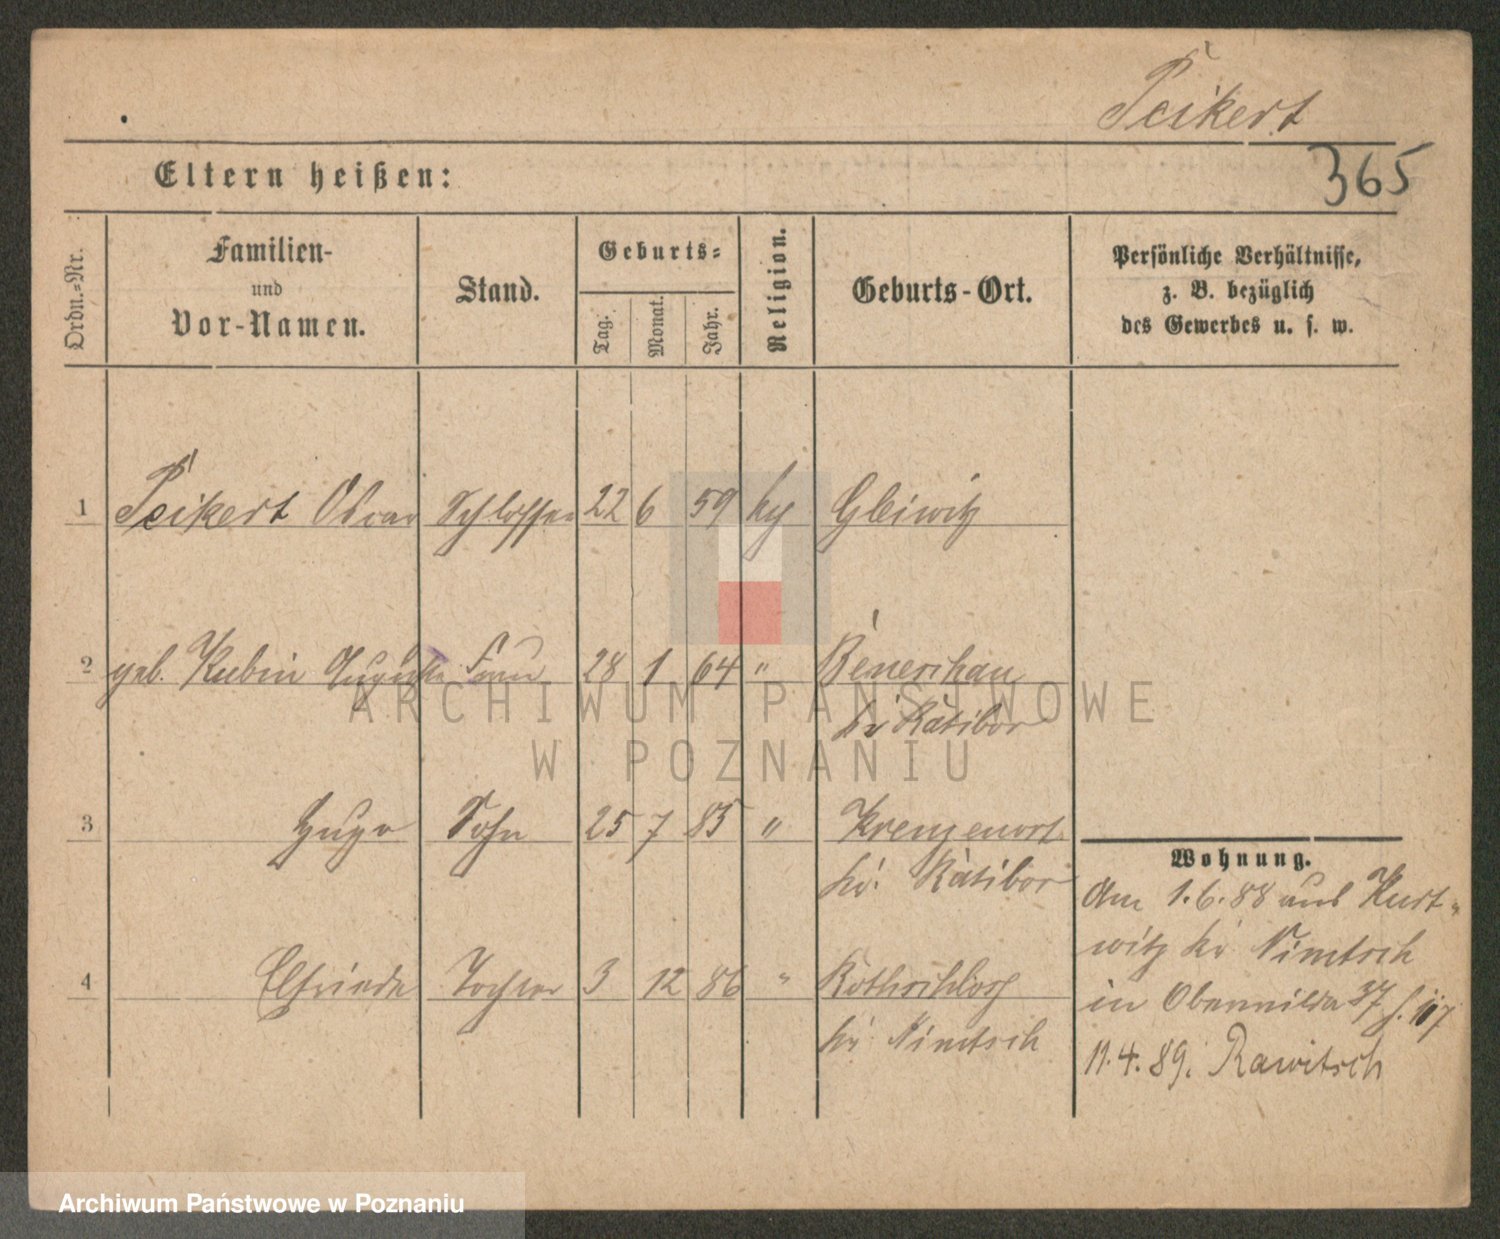 Peikert
365
Eltern heißen:
Ordn.-Nr.
Familien-
und
Vor-Namen.
Stand.
Geburts-
Tag.
Monat.
Jahr.
Religion.
Geburts-Ort.
Persönliche Verhältnisse,
z. B. bezüglich
des Gewerbes u. s. w.
1 Peikert Oscar Schlosser 22 6 59 Gleiwitz
2 geb. Kubin Auguste Frau 28 1 64 " Beneschau
Kr Ratibor
3 Hugo Sohn 25 7 85 " Kranzenort
Kr. Ratibor
4 Elfriede Tochter 3 12 86 " Rothschloss
Kr Nimtsch
Wohnung.
Am 1.6.88 aus Kurt-
witz Kr Nimtsch
in Oberwilda 37
11.4.89. Rawitsch
ARCHIWUM PAŃSTWOWE
W POZNANIU
Archiwum Państwowe w Poznaniu